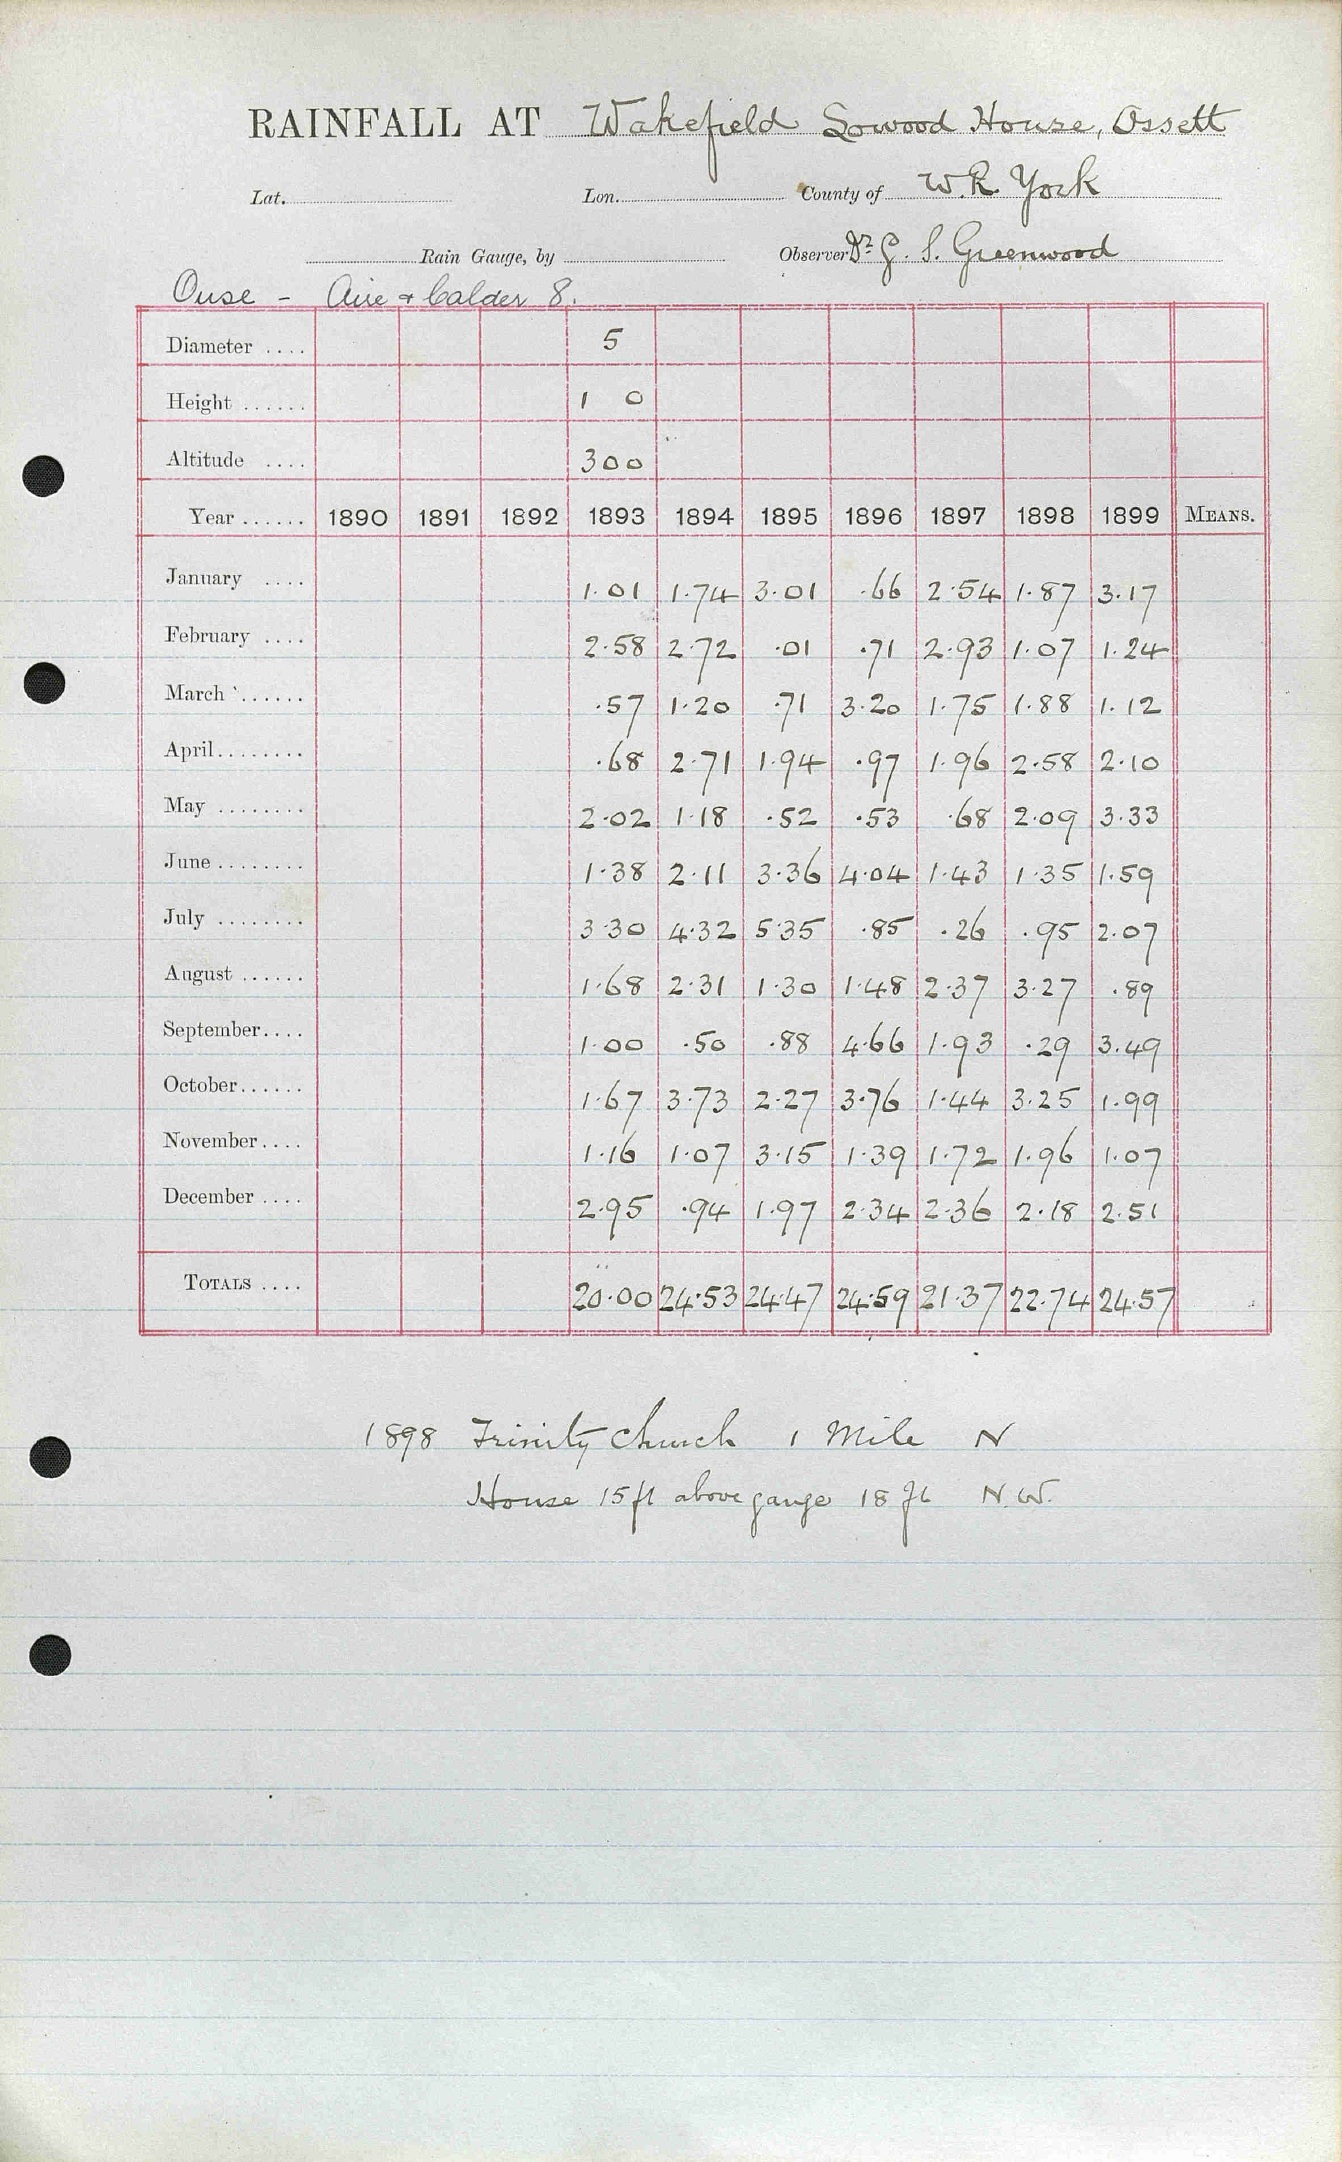 RAINFALL AT Wakefield Sowood House, Ossett
Lat. Lon. County of W.R. York
Rain Gauge, by Observer Dr. G. S. Greenwood
Ouse - Aire & Calder 8.
Diameter .... 5
Height ...... 1 0
Altitude .... 300
Year ...... 1890 1891 1892 1893 1894 1895 1896 1897 1898 1899 MEANS.
January .... 1.01 1.74 3.01 .66 2.54 1.87 3.17
February .... 2.58 2.72 .01 .71 2.93 1.07 1.24
March ...... .57 1.20 .71 3.20 1.75 1.88 1.12
April ........ .68 2.71 1.94 .97 1.96 2.58 2.10
May ........ 2.02 1.18 .52 .53 .68 2.09 3.33
June ........ 1.38 2.11 3.36 4.04 1.43 1.35 1.59
July ........ 3.30 4.32 5.35 .85 .26 .95 2.07
August ...... 1.68 2.31 1.30 1.48 2.37 3.27 .89
September .... 1.00 .50 .88 4.66 1.93 .29 3.49
October ...... 1.67 3.73 2.27 3.76 1.44 3.25 1.99
November .... 1.16 1.07 3.15 1.39 1.72 1.96 1.07
December .... 2.95 .94 1.97 2.34 2.36 2.18 2.51
TOTALS .... 20.00 24.53 24.47 24.59 21.37 22.74 24.57
1898 Trinity Church 1 Mile N
House 15 ft above gauge 18 ft N.W.